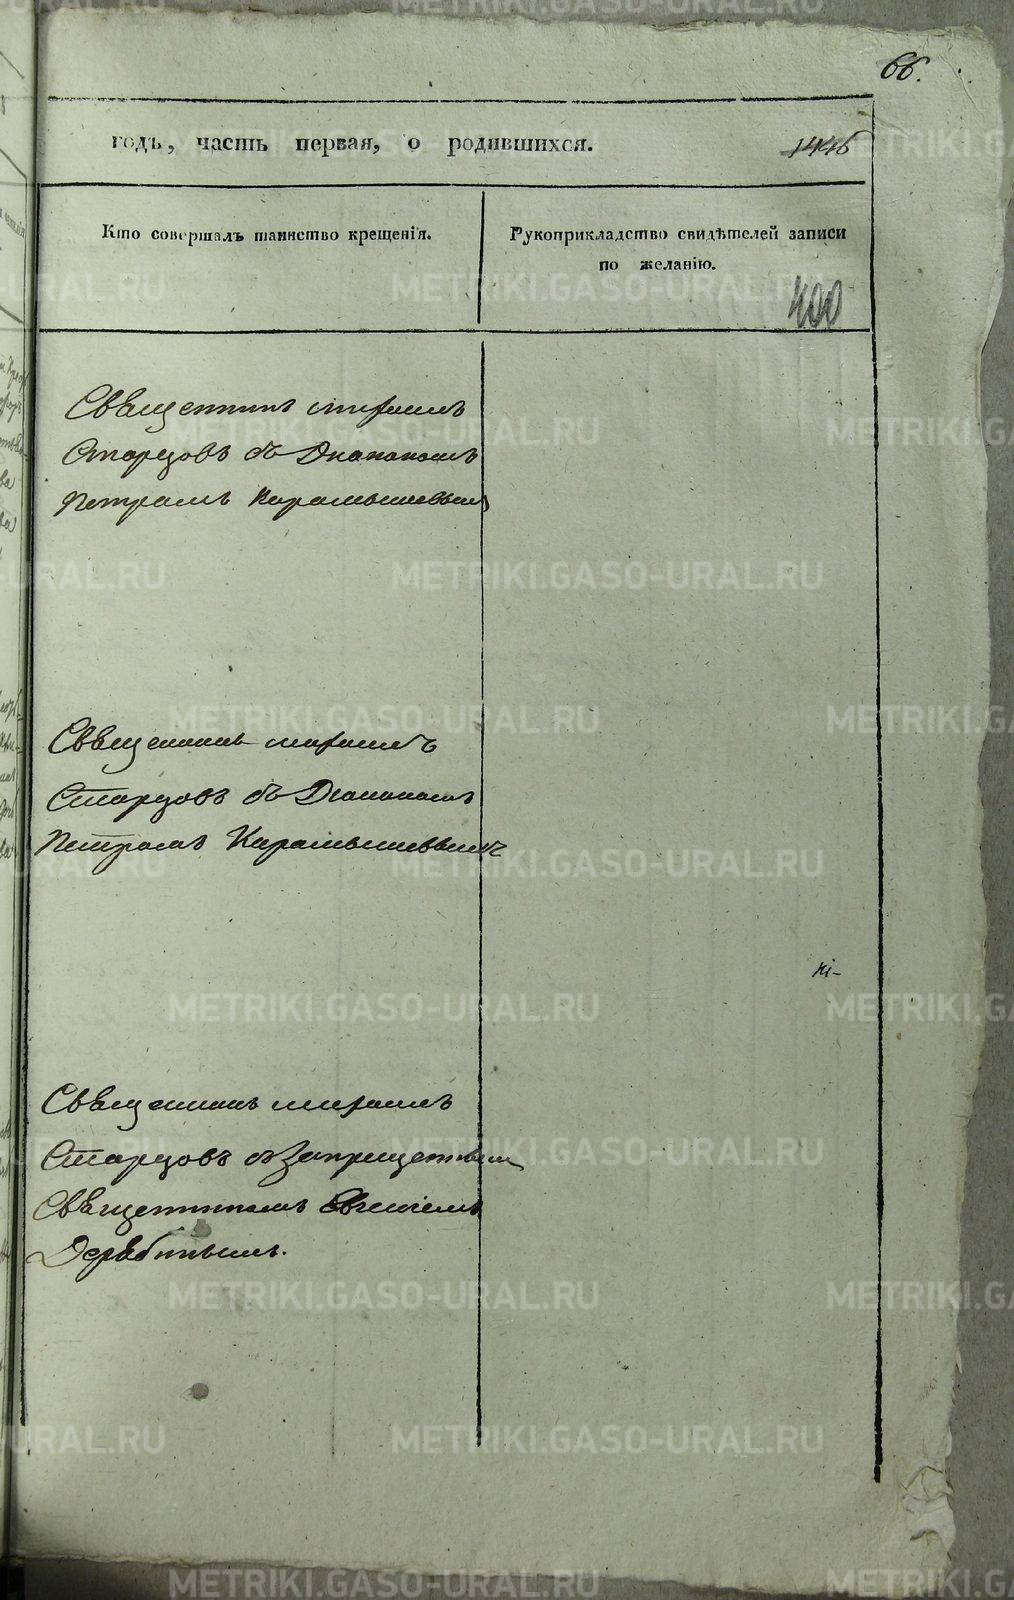 66.
годъ, часть первая, о родившихся. 1446
Кто совершалъ таинство крещенія.
Рукоприкладство свидѣтелей записи
по желанію.
400
Священникъ
Старцовъ съ Диакономъ
Петромъ Карамышевымъ
Священникъ
Старцовъ съ Диакономъ
Петромъ Карамышевымъ
Священникъ
Старцовъ съ Запрещеннымъ
Священникомъ Евгениемъ
Дерябинымъ.
METRIKI.GASO-URAL.RU